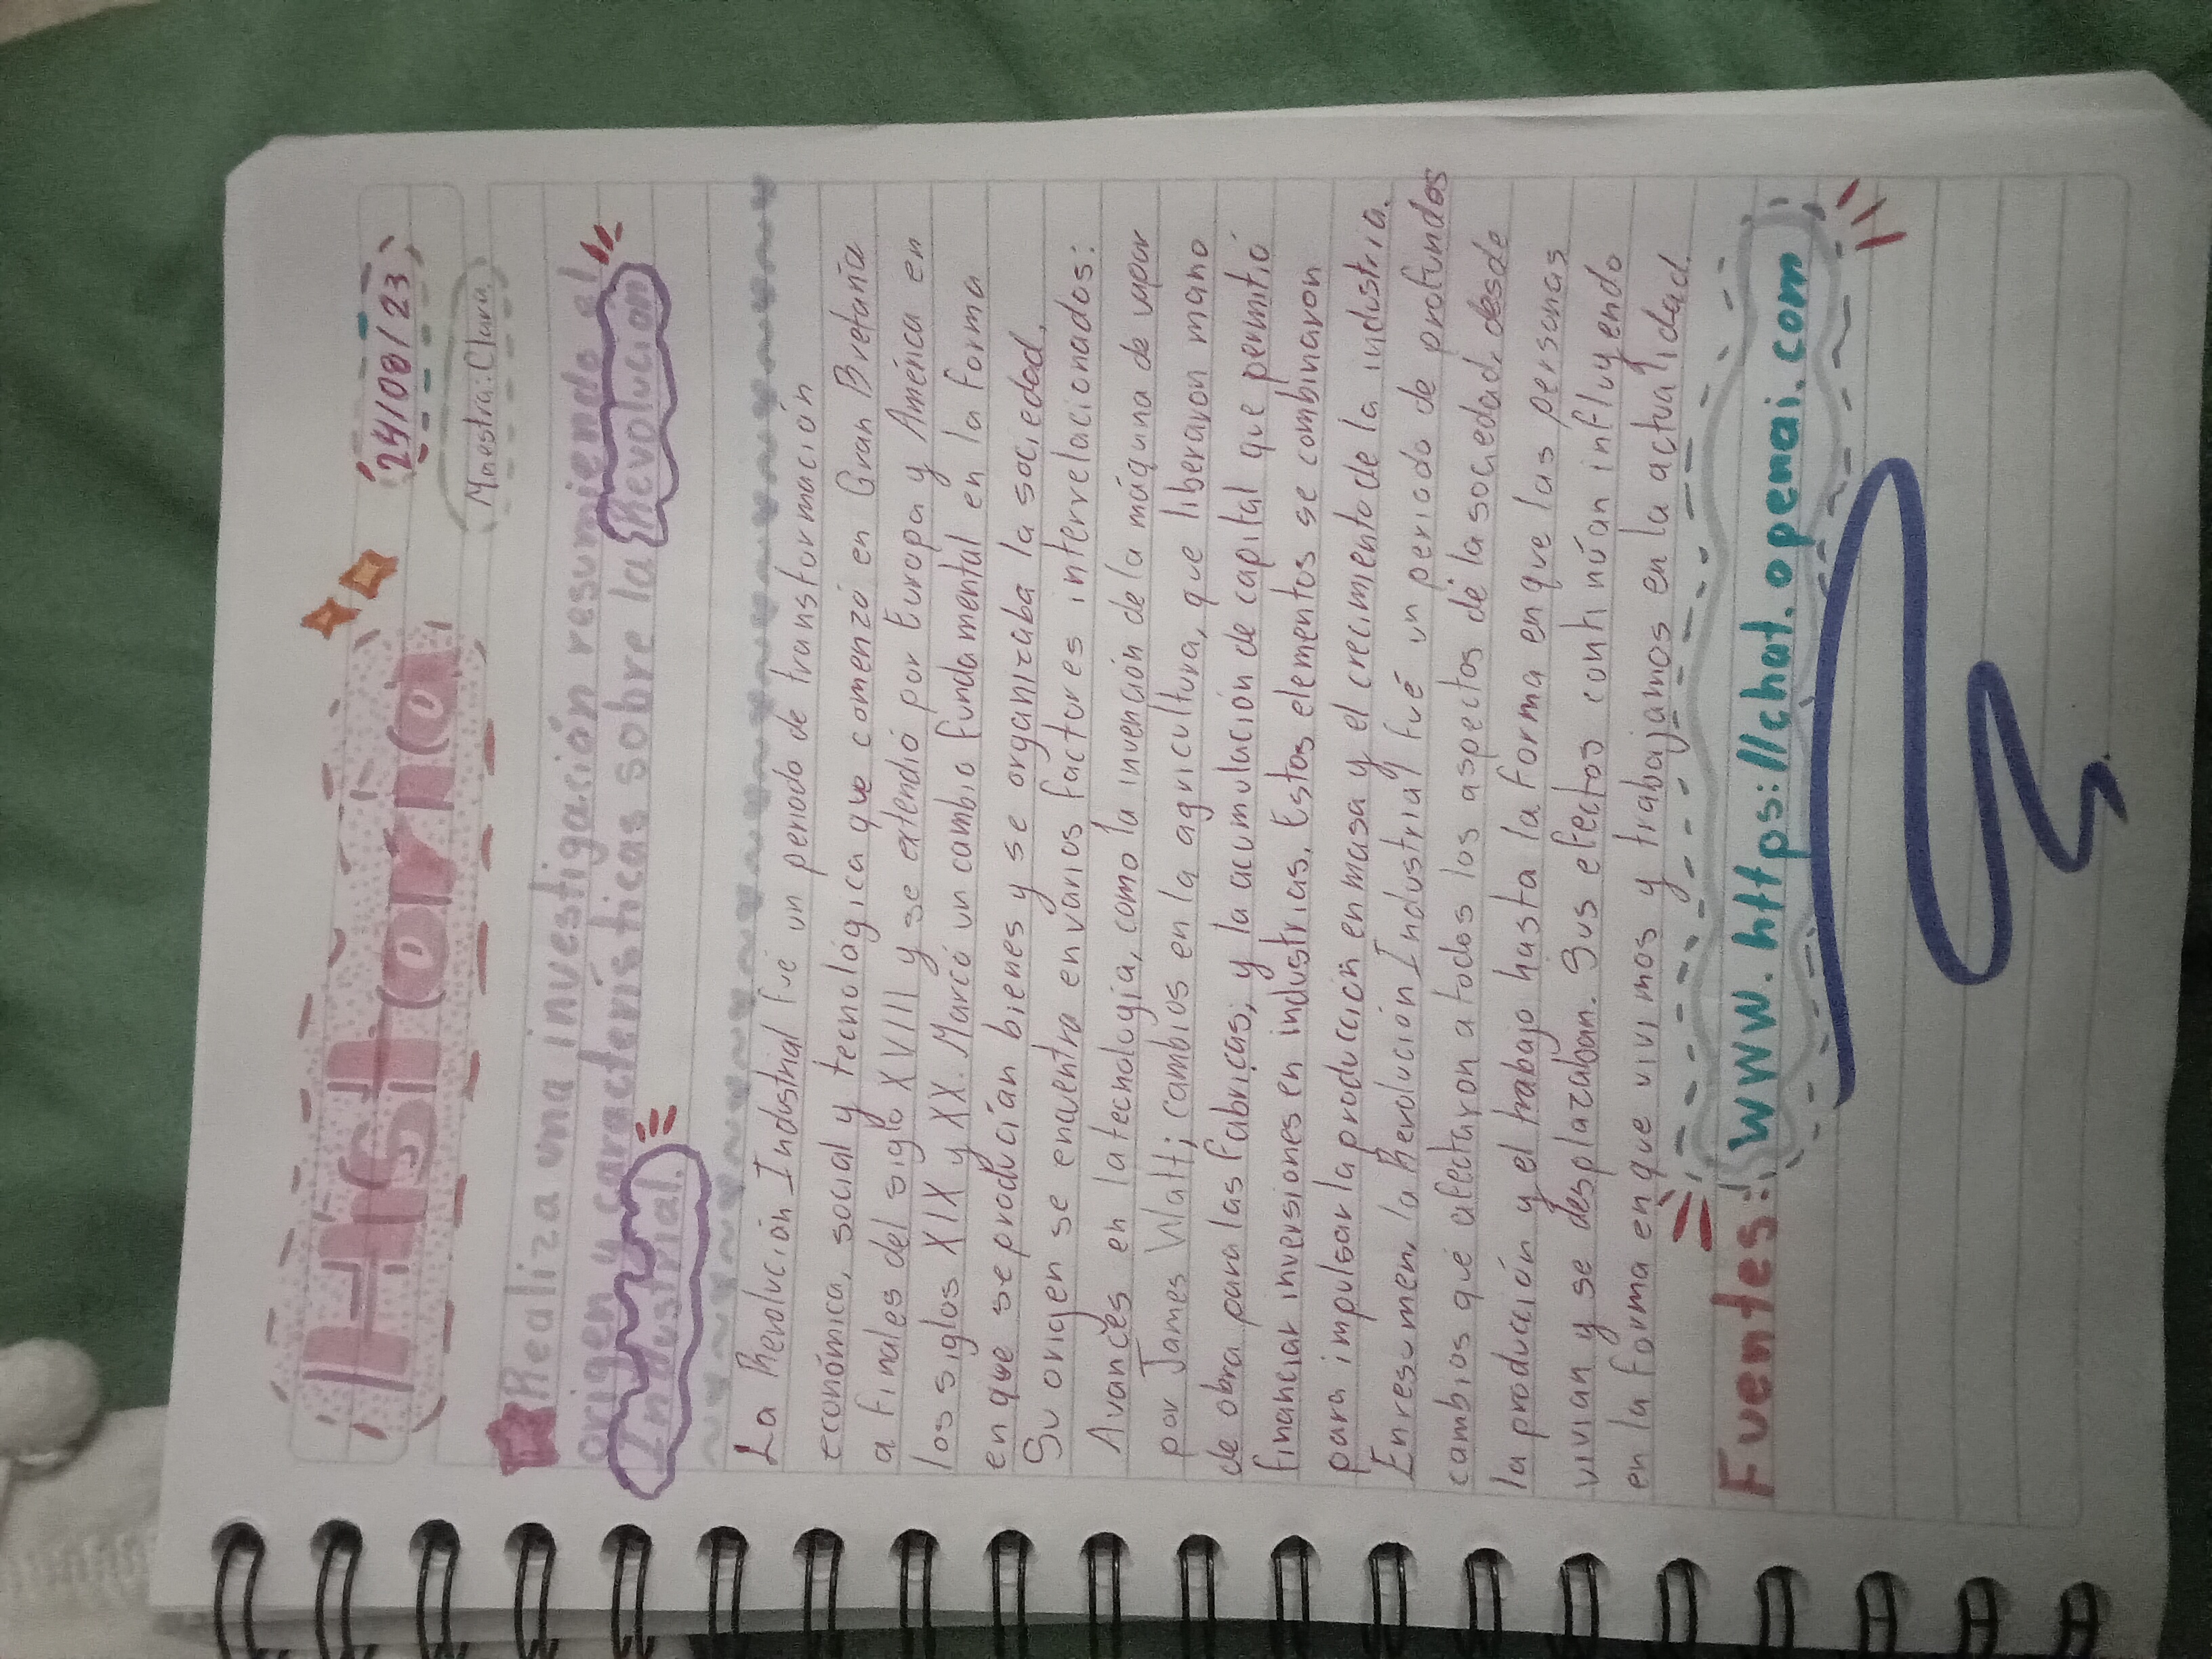 Historia
24/08/23
Maestra: Clara
Realiza una investigación resumiendo el
origen y características sobre la Revolución
Industrial.
La Revolución Industrial fué un periodo de transformación
económica, social y tecnológica que comenzó en Gran Bretaña
a finales del siglo XVIII y se extendió por Europa y América en
los siglos XIX y XX. Marcó un cambio fundamental en la forma
en que se producían bienes y se organizaba la sociedad.
Su origen se encuentra en varios factores interrelacionados:
Avances en la tecnología, como la invención de la máquina de vapor
por James Watt; cambios en la agricultura, que liberaron mano
de obra para las fabricas; y la acumulación de capital que permitió
financiar inversiones en industrias. Estos elementos se combinaron
para impulsar la producción en masa y el crecimiento de la industria.
En resumen, la Revolución Industrial fué un periodo de profundos
cambios qué afectaron a todos los aspectos de la sociedad, desde
la producción y el trabajo hasta la forma en que las personas
vivian y se desplazaban. Sus efectos continúan influyendo
en la forma en que vivimos y trabajamos en la actualidad.
Fuentes: www.https://chat.openai.com